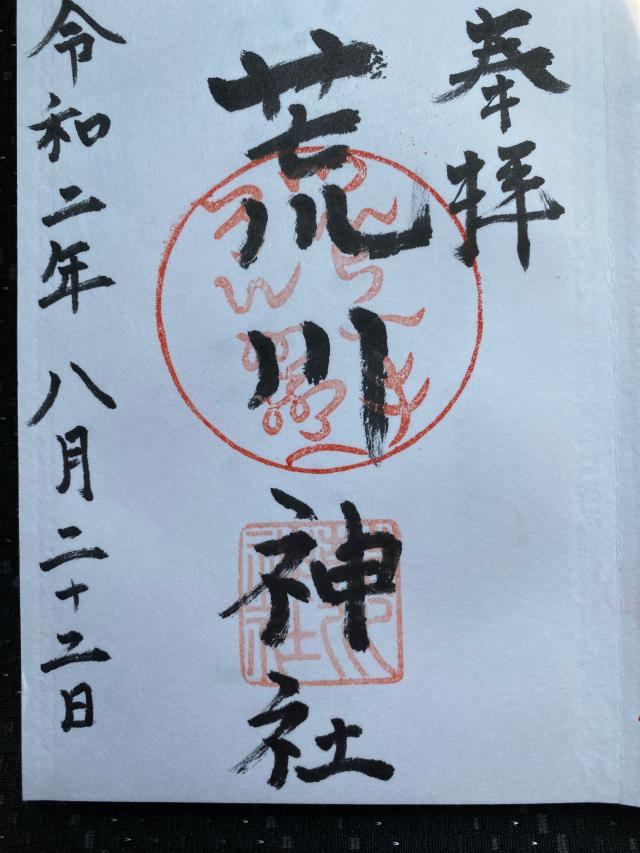 奉拝
荒川神社
令和二年八月二十二日